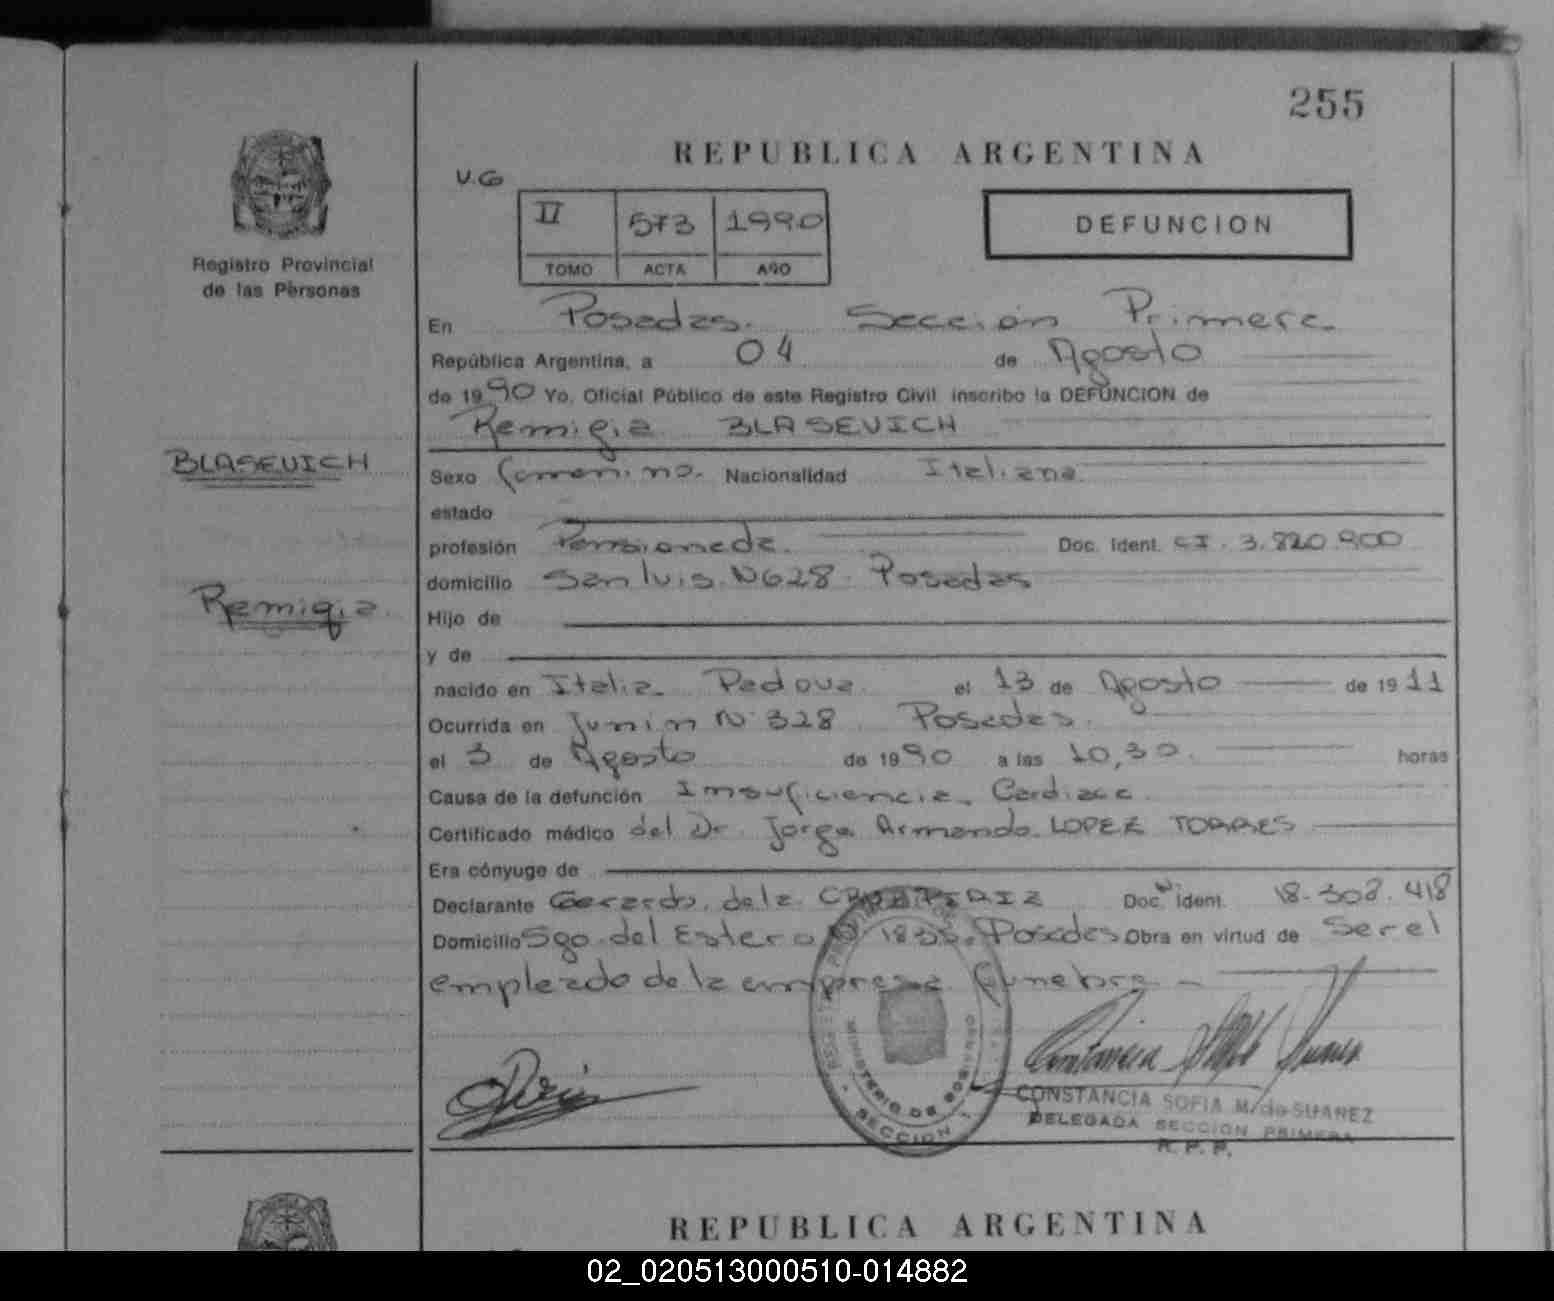 255
REPUBLICA ARGENTINA
V.G
II 573 1990
TOMO ACTA AÑO
DEFUNCION
Registro Provincial
de las Personas
En Posadas. Sección Primera
República Argentina, a 04 de Agosto
de 1990 Yo, Oficial Público de este Registro Civil inscribo la DEFUNCION de
Remigia BLASEVICH
BLASEVICH
Remigia
Sexo femenino. Nacionalidad Italiana
estado
profesión Pensionada. Doc. Ident. CI. 3.820.900
domicilio San luis. N628. Posadas
Hijo de
y de
nacido en Italia. Padova. el 13 de Agosto de 1911
Ocurrida en Junin N° 328 Posadas.
el 3 de Agosto de 1990 a las 10,30. horas
Causa de la defunción Insuficiencia Cardiaca
Certificado médico del Dr. Jorge Armando LOPEZ TORRES
Era cónyuge de
Declarante Gerardo de la CRUZ PIRIZ Doc. Ident. 18.308.418
Domicilio Sgo. del Estero Posadas Obra en virtud de Ser el
empleado de la empresa funebre
MINISTERIO DE GOBIERNO
SECCION 1
CONSTANCIA SOFIA M. de SUAREZ
DELEGADA SECCION PRIMERA
R. P. P.
REPUBLICA ARGENTINA
02_020513000510-014882